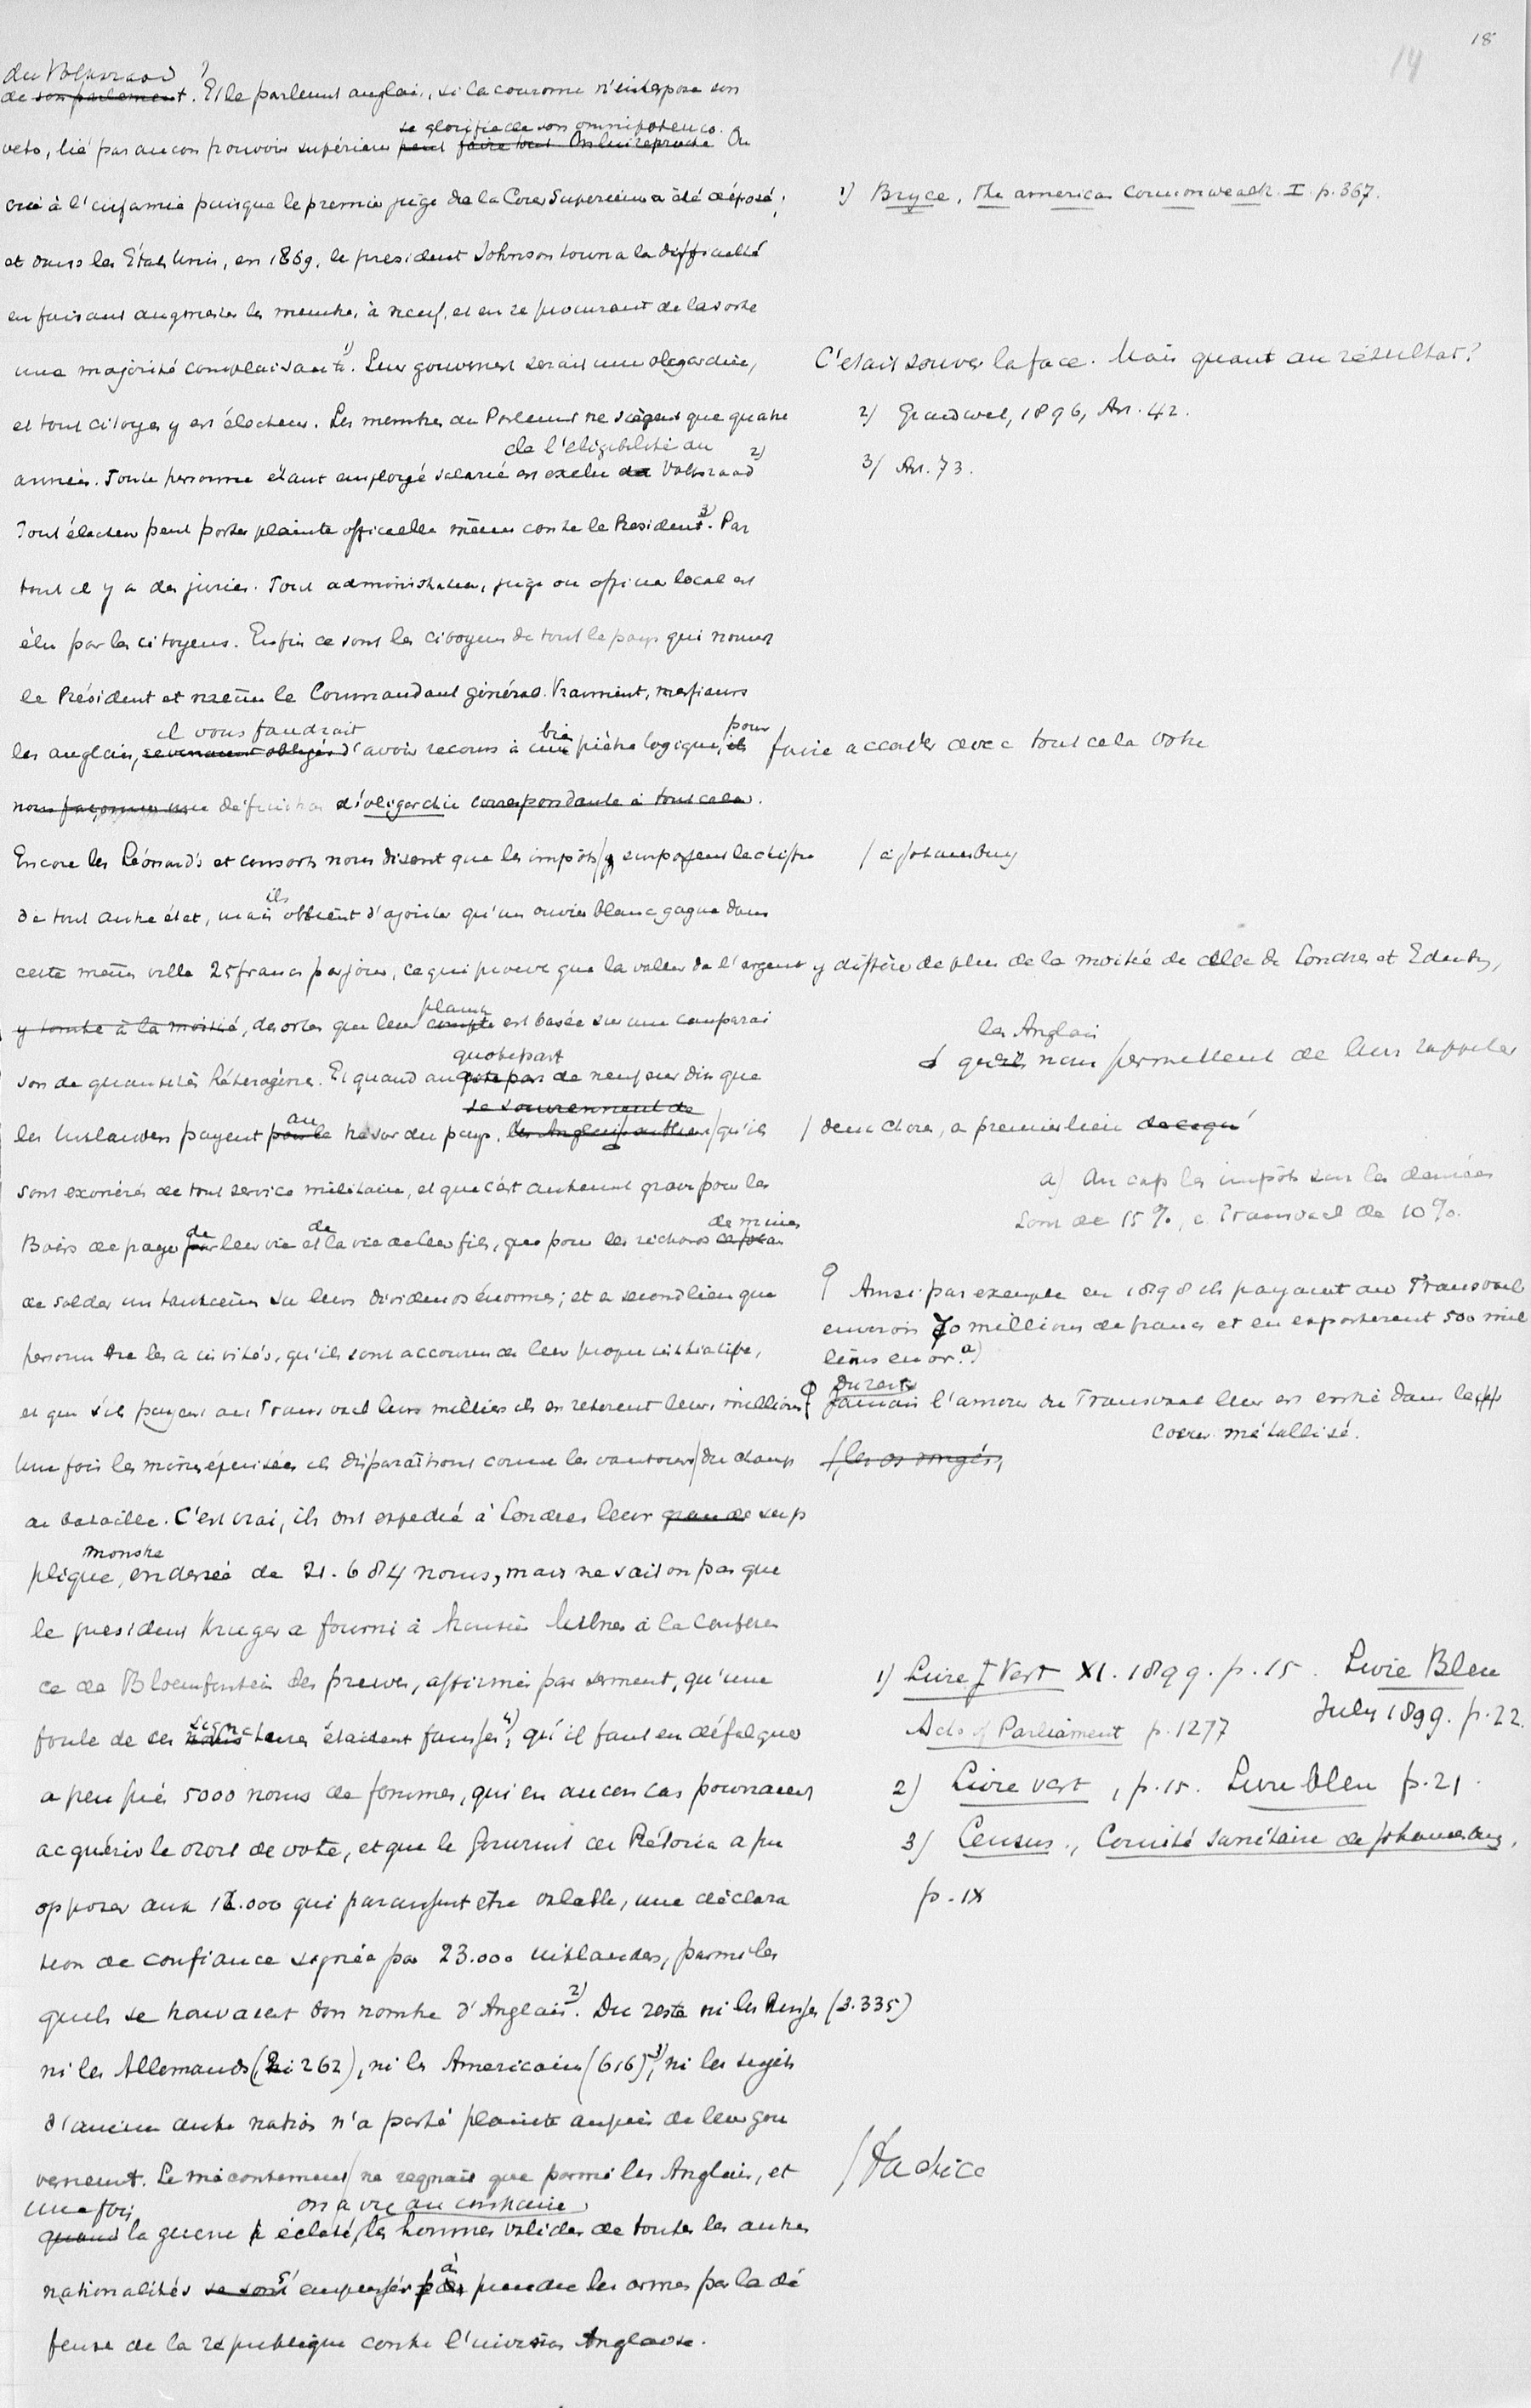 18
14
du Volksraad
de son parlement. Et le parlement anglais, si la couronne n'interpose son
se glorifie de son omnipotence.
veto, lié par aucun pouvoir supérieur peut faire tout. On lui reproche On
crie à l'infamie puisque le premier juge de la Cour Superieure a été déposé;
1) Bryce, The american Commonwealth I p. 367.
et dans les États Unis, en 1869, le president Johnson tourna la difficulté
en faisant augmenter les membres à neuf, et en se procurant de la sorte
une majorité complaisante 1). Leur gouvernement serait une oligarchie,
C'etait sauver la face. Mais quant au résultat?
et tout citoyen y est électeur. Les membres du Parlement ne siègent que quatre
2) Grondwet, 1896, Art. 42.
de l'éligibilité au
années. Toute personne étant employé salarié est exclu du Volksraad 2)
3) Art. 73.
Tout électeur peut porter plainte officielle même contre le President 3). Par
tout il y a des juries. Tout administrateur, juge ou officier local est
élu par les citoyens. Enfin ce sont les citoyens de tout le pays qui nomment
le Président et même le Commandant général. Vraiment, messieurs
il vous faudrait bien pour
les anglais, d'avoir recours à une piètre logique, ils faire accorder avec tout cela votre
nous façonner une définition d'oligarchie correspondante à tout cela.
Encore les Léonards et consorts nous disent que les impôts / y surpassent le chiffre
/ à Johannesburg
ils
de tout autre état, mais oublient d'ajouter qu'un ouvrier blanc gagne dans
cette même ville 25 francs par jour, ce qui prouve que la valeur de l'argent y diffère de plus de la moitié de celle de Londres et
plainte
y tombe à la moitié, de sorte que leur compte est basée sur une comparai
les Anglais
qu'ils nous permettent de leur rappeler
quotepart
son de quantités héterogènes. Et quand au quote part de neuf sur dix que
se souviennent de
au
les Uitlanders payent pour le trésor du pays, les Anglais oublient / qu'ils
/ deux choses, a premier lieu de ce qu
sont exonérés de tout service militaire, et que c'est autrement grave pour les
a) Au cap les impôts sur les denrées
sont de 15 %, a Transvaal de 10 %.
de de de mines
Boërs de payer par leur vie et la vie de leur fils, que pour les richards
de solder un tantième sur leurs dividendes énormes; et a second lieu que
Ainsi par exemple en 1898 ils payaient au Transvaal
environ 70 millions de francs et en exporterent 500 mil
personne ne les a invités, qu'ils sont accourus de leur propre initiative,
lions en or. a)
et que s'ils payent au Transvaal leurs milliers ils en retirent leurs millions
Du reste
Jamais l'amour du Transvaal leur est entré dans le
coeur métallisé.
Une fois les mines épuisées ils disparaîtront comme les vautours / du champ
/ les os rongés,
de bataille. C'est vrai, ils ont expedié à Londres leur grande sup
monstre
plique, endossée de 21.684 noms, mais ne sait on pas que
le president Kruger a fourni à Monsieur Milner à la Conferen
ce de Bloemfontein des preuves, affirmés par serment, qu'une
1) Livre Vert XI. 1899. p. 15. Livre Bleu
July 1899. p. 22.
signa
foule de ces noms tures étaient fausses 1), qu'il faut en défalquer
Acts of Parliament p. 1277
a peu près 5000 noms de femmes, qui en aucun cas pourraient
2) Livre vert, p. 15. Livre bleu p. 21.
acquérir le droit de vote, et que le Gouvernment de Prétoria a pu
3) Census., Comité sanitaire de Johannesburg,
p. IX
opposer aux 12.000 qui paraissent être valable, une déclara
tion de confiance signée par 23.000 Uitlanders, parmi les
quels se trouvaient bon nombre d'Anglais 2). Du reste ni les Russes (3.335)
ni les Allemands (2262), ni les Americains (616) 3), ni les sujets
d'aucune autre nation n'a porté plainte auprès de leur gou
vernement. Le mécontentement / ne regnait que parmi les Anglais, et
/ factice
Une fois on a vu au contraire
quand la guerre éclaté, les hommes valides de toutes les autres
à
nationalités se sont s'empressés prendre les armes pour la dé
fense de la république contre l'invasion Anglaise.